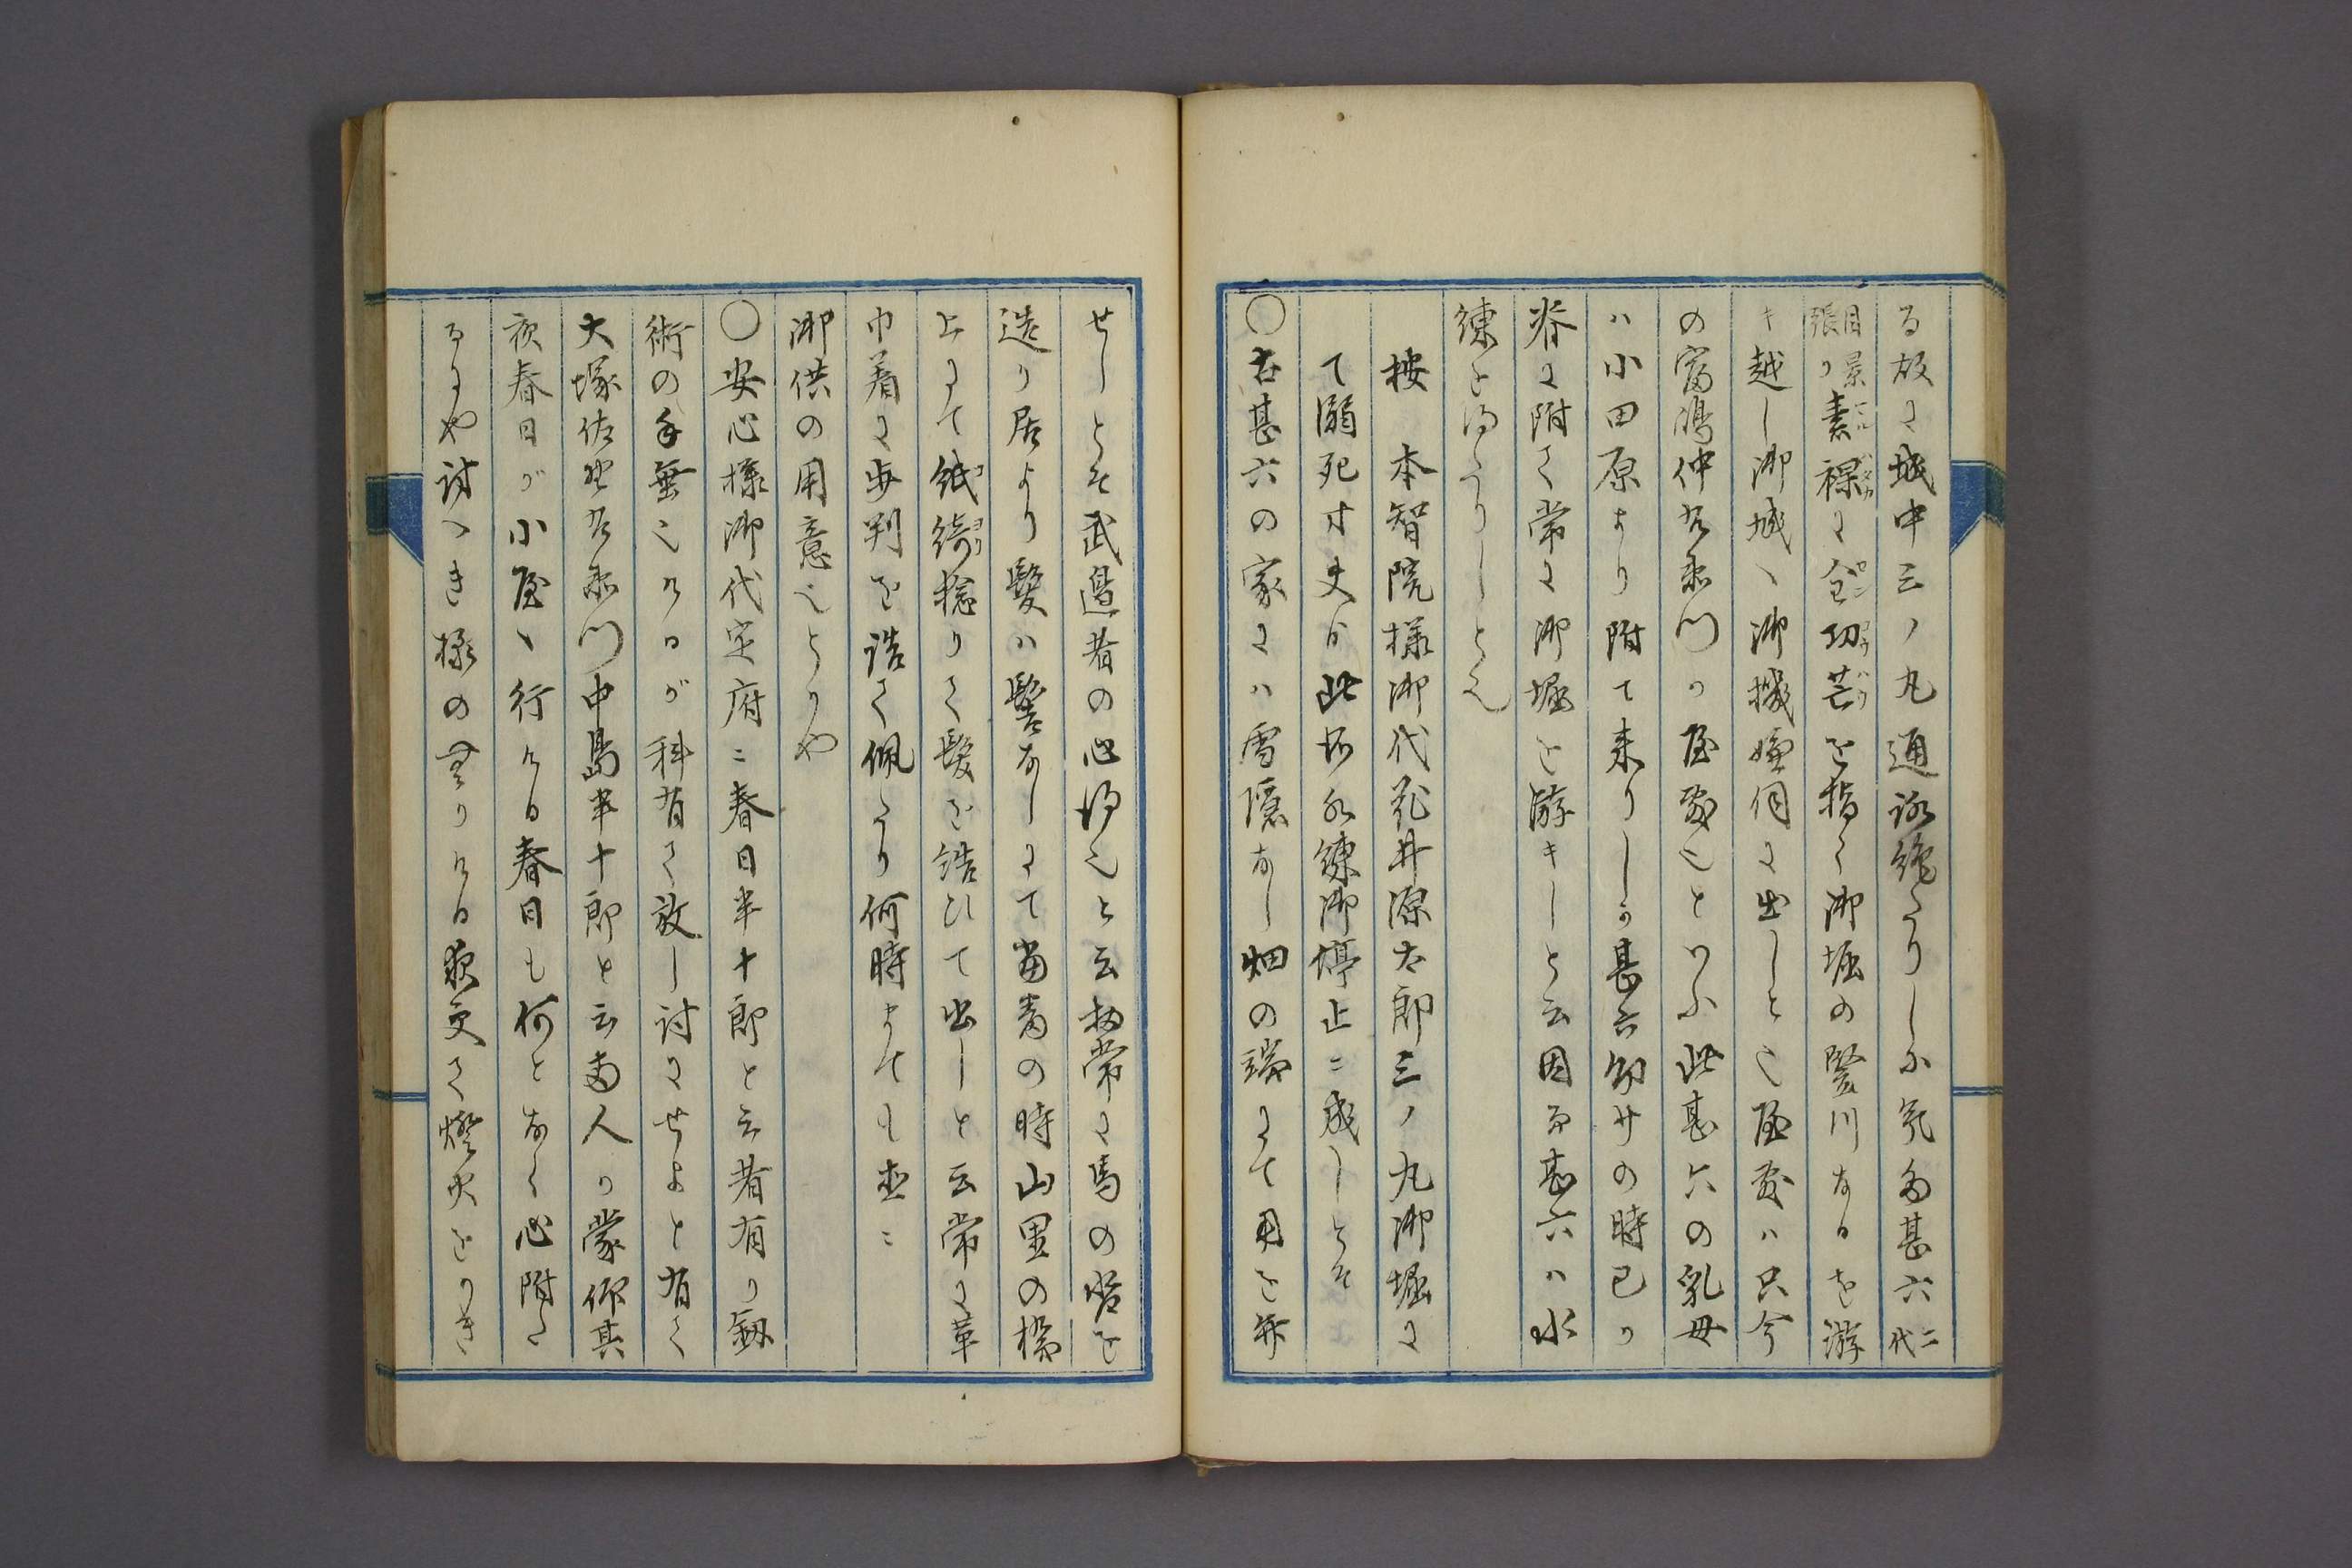 る故に城中三ノ丸通詠絶たりしに荒島甚六二代
目景張り素裸に全切芒を指て御堀の竪川なるを游
キ越し御城へ御機嫌伺に出しと也屋敷ハ只今
の富嶋仲右衛門か屋敷也といふ此甚六の乳母
ハ小田原より附て来りしか甚六幼少の時已か
脊に附て常に御堀を游キしと云因而甚六ハ水
練を得たりしとそ
按 本智院様御代花井源太郎三ノ丸御堀に
て溺死す夫より此水練御停止ニ成しとそ
〇右甚六の家にハ雪隠なし畑の端にて用を弁
せしとそ武邊者の心得也と云扨常に馬の沓を
造り居より髪ハ鬢なしにて當番の時山里の橋
上にて紙綺捻りて髪を結ひて出しと云常に革
巾着に歩判を詰て佩たり何時にても直ニ
御供の用意也とかや
〇安心様御代定府ニ春日半十郎と云者有り劔
術の手垂也けるが科有て放し討にせよと有て
大塚佐野右衛門中島半十郎と云両人か蒙仰其
夜春日が小屋へ行ける春日も何となく心附た
るにや討へき様の無りける夜更て燈火をかき